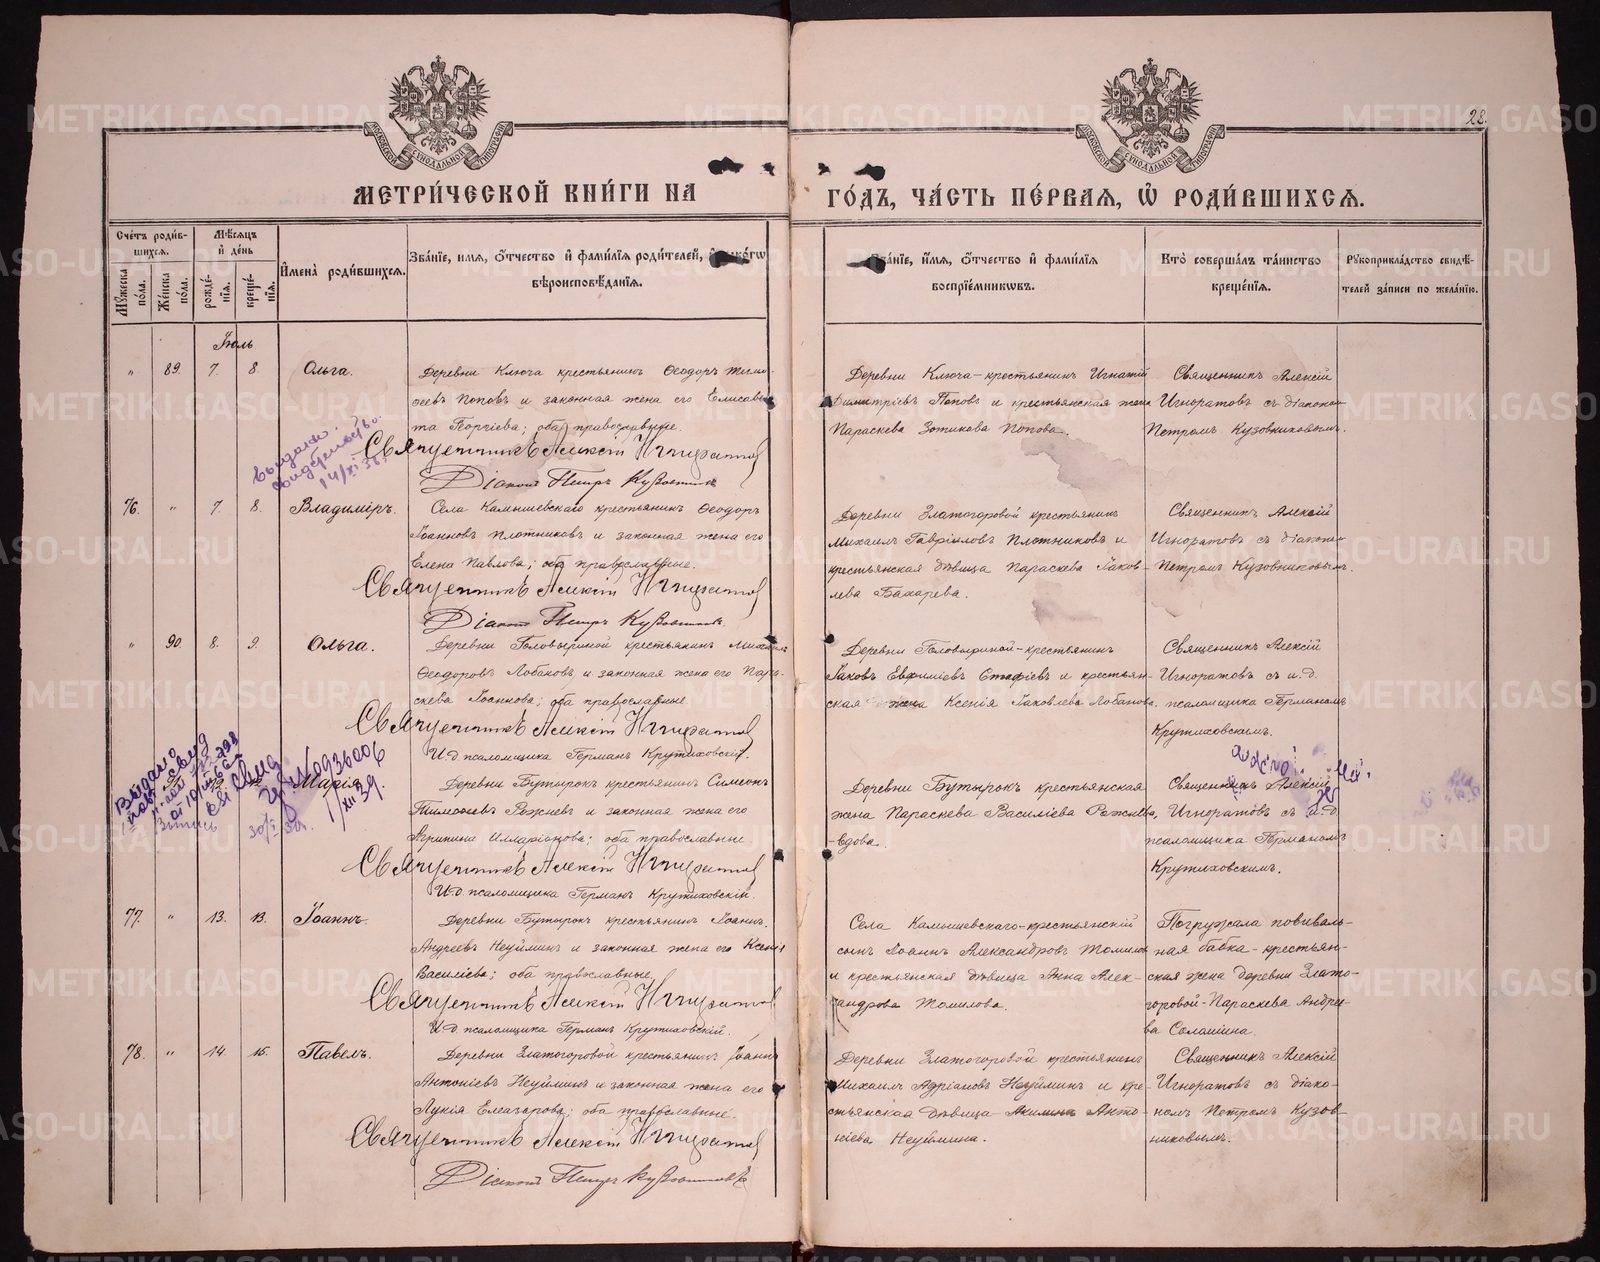 28.
МЕТРИ́ЧЕСКОЙ КНИ́ГИ НА
ГО́ДЪ, ЧА́СТЬ ПЕ́РВАЯ, Ѡ҆ РОДИ́ВШИХСЯ.
Сче́тъ роди́в-
шихся.
Мꙋжеска по́ла.
Же́нска по́ла.
Мѣ́сяцъ и҆ де́нь
рожде́-нїя.
креще́-нїя.
И҆мена̀ роди́вшихся.
Зва́нїе, и҆мя, ѻ҆́тчество и҆ фами́лїя роди́телей, и҆ како́гѡ
вѣроисповѣ́данїя.
Зва́нїе, и҆́мя, ѻ҆́тчество и҆ фами́лїя
воспрїе́мникѡвъ.
Кто̀ соверша́лъ та́инство
креще́нїя.
Рꙋкоприкла́дство свидѣ́-
телей за́писи по жела́нїю.
Іюль
" 89. 7. 8. Ольга.
Деревни Ключа крестьянинъ Ѳеодоръ Тимо-
ѳеевъ Поповъ и законная жена его Елисаве-
та Георгіева; оба православные.
Священникъ Алексій Игноратовъ
Діаконъ Петръ Кузовниковъ
Деревни Ключа - крестьянинъ Игнатій
Димитріевъ Поповъ и крестьянская жена
Параскева Зотикова Попова.
Священникъ Алексій
Игноратовъ съ діакономъ
Петромъ Кузовниковымъ.
Выдано
свидѣтельство.
14/XI 36
76. " 7. 8. Владиміръ.
Села Камышевскаго крестьянинъ Ѳеодоръ
Іоанновъ Плотниковъ и законная жена его
Елена Павлова; оба православные.
Священникъ Алексій Игноратовъ
Діаконъ Петръ Кузовниковъ.
Деревни Златогоровой крестьянинъ
Михаилъ Гавріиловъ Плотниковъ и
крестьянская дѣвица Параскева Іаков-
лева Бахарева.
Священникъ Алексій
Игноратовъ съ діакономъ
Петромъ Кузовниковымъ.
" 90. 8. 9. Ольга.
Деревни Головыриной крестьянинъ Михаилъ
Ѳеодоровъ Лобановъ и законная жена его Пара-
скева Іоаннова; оба православные
Священникъ Алексій Игноратовъ
И.д. псаломщика Германъ Крутиховскій.
Деревни Головыриной - крестьянинъ
Іаковъ Евфиміевъ Стафіевъ и крестьян-
ская жена Ксенія Іаковлева Лобанова.
Священникъ Алексій
Игноратовъ съ и.д.
псаломщика Германомъ
Крутиховскимъ.
Выдано
Марія.
Деревни Бутырокъ крестьянинъ Симеонъ
Пименовъ Рожневъ и законная жена его
Агрипина Илларіонова; оба православные
Священникъ Алексій Игноратовъ
И.д. псаломщика Германъ Крутиховскій.
Деревни Бутырокъ крестьянская
жена Параскева Василіева Рожнева,
вдова.
Священникъ Алексій
Игноратовъ съ и.д.
псаломщика Германомъ
Крутиховскимъ.
77. " 13. 13. Іоаннъ.
Деревни Бутырокъ крестьянинъ Іоаннъ
Андреевъ Неуйминъ и законная жена его Ксенія
Василіева; оба православные.
Священникъ Алексій Игноратовъ
И.д. псаломщика Германъ Крутиховскій.
Села Камышевскаго - крестьянскій
сынъ Іоаннъ Александровъ Томиловъ
и крестьянская дѣвица Анна Алек-
сандрова Томилова.
Погружала повиваль-
ная бабка - крестьян-
ская жена деревни Злато-
горовой - Параскева Андрее-
ва Соломіина.
78. " 14. 15. Павелъ.
Деревни Златогоровой крестьянинъ Іоаннъ
Антоніевъ Неуйминъ и законная жена его
Лукія Елеазарова; оба православные.
Священникъ Алексій Игноратовъ
Діаконъ Петръ Кузовниковъ
Деревни Златогоровой крестьянинъ
Михаилъ Адріановъ Неуйминъ и кре-
стьянская дѣвица Акилина Анто-
ніева Неуймина.
Священникъ Алексій
Игноратовъ съ діако-
номъ Петромъ Кузов-
никовымъ.
METRIKI.GASO-URAL.RU